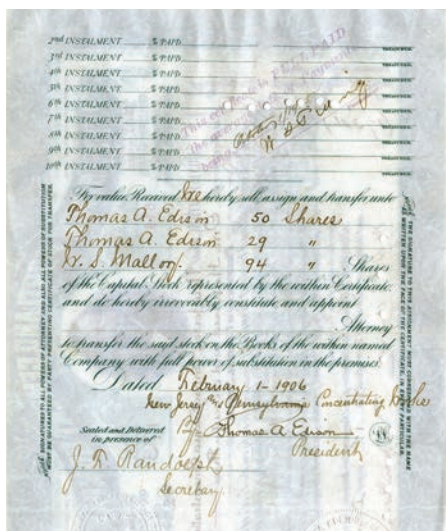 2nd INSTALMENT $ PAID TREASURER.
3rd INSTALMENT $ PAID TREASURER.
4th INSTALMENT $ PAID TREASURER.
5th INSTALMENT $ PAID TREASURER.
6th INSTALMENT $ PAID TREASURER.
7th INSTALMENT $ PAID TREASURER.
8th INSTALMENT $ PAID TREASURER.
9th INSTALMENT $ PAID TREASURER.
10th INSTALMENT $ PAID TREASURER.
This FULL PAID
For value Received We hereby sell, assign and transfer unto
Thomas A. Edison 50 Shares
Thomas A. Edison 29 "
W. S. Mallory 94 " Shares
of the Capital Stock represented by the within Certificate
and do hereby irrevocably constitute and appoint
Attorney
to transfer the said stock on the Books of the within named
Company with full power of substitution in the premises.
Dated February 1 - 1906
New Jersey and Pennsylvania Concentrating Works
By Thomas A Edison
President
Sealed and Delivered
in presence of
J. F. Randolph
Secretary.
NOTE: SIGNATURES TO ALL POWERS OF ATTORNEY AND ALSO ALL POWERS OF SUBSTITUTION
MUST BE GUARANTEED BY PARTY PRESENTING CERTIFICATE OF STOCK FOR TRANSFER.
NOTICE: THE SIGNATURE TO THIS ASSIGNMENT MUST CORRESPOND WITH THE NAME
AS WRITTEN UPON THE FACE OF THE CERTIFICATE, IN EVERY PARTICULAR